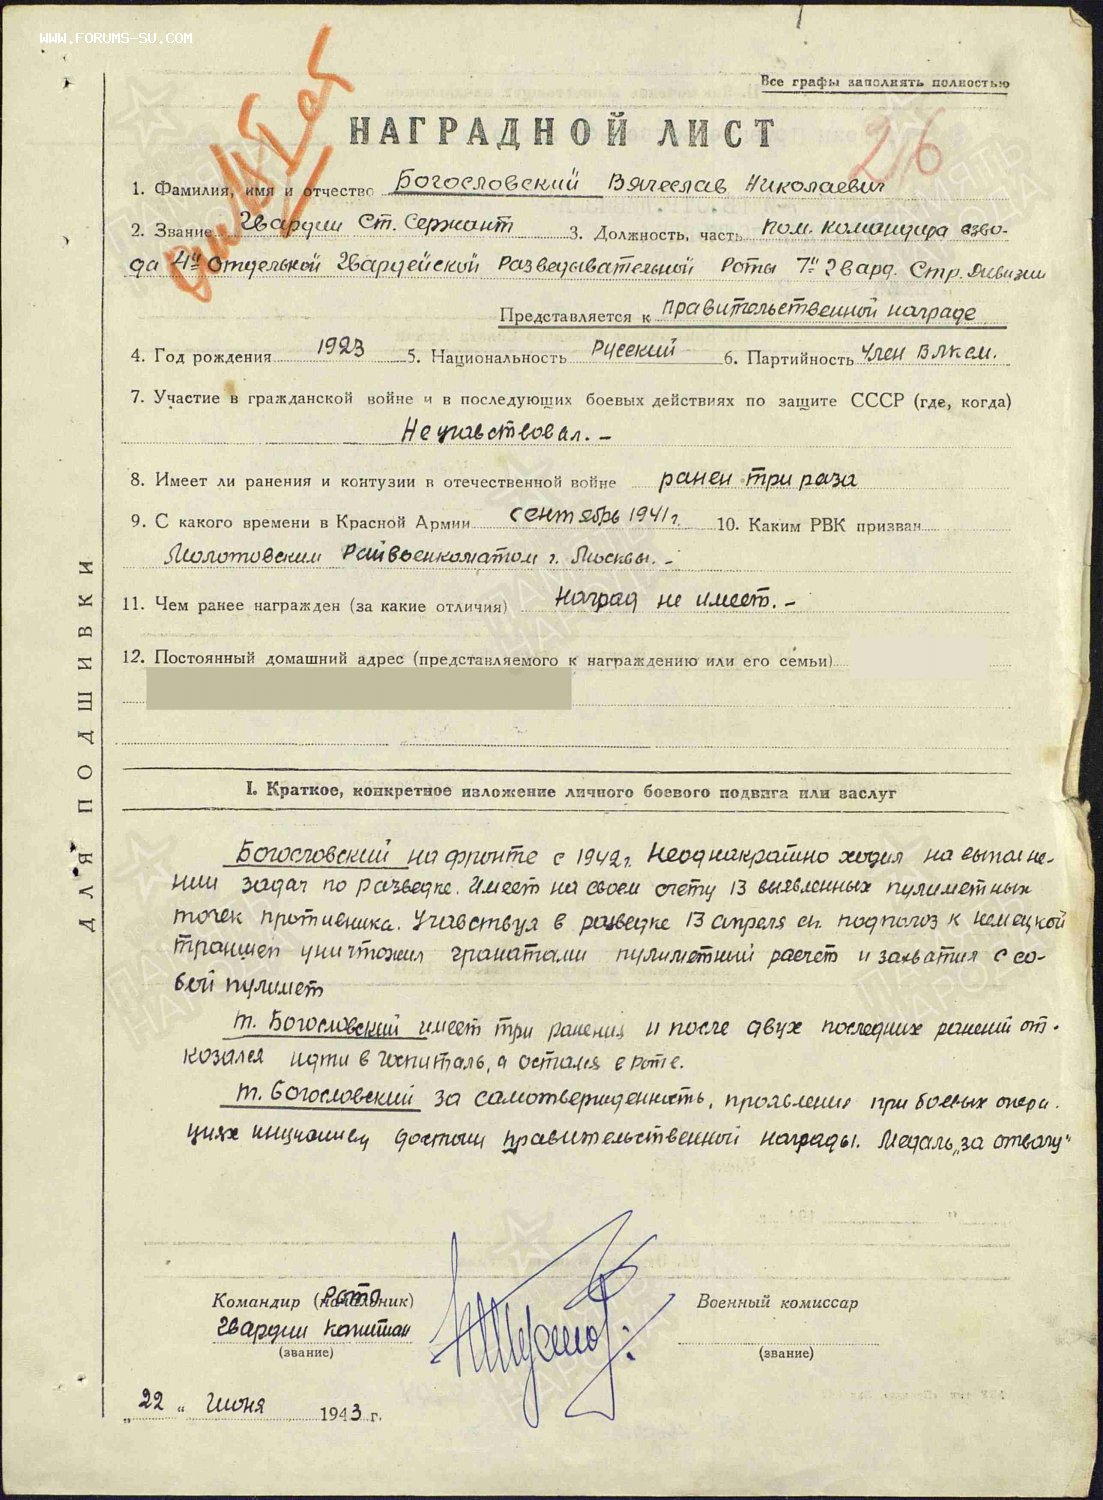 WWW.FORUMS-SU.COM
Все графы заполнять полностью
НАГРАДНОЙ ЛИСТ
26
1. Фамилия, имя и отчество Богословский Вячеслав Николаевич
2. Звание Гвардии Ст. Сержант 3. Должность, часть пом. командира взво-
да 4й Отдельной Гвардейской Разведывательной Роты 7й Гвард. Стр. Дивизии
Представляется к правительственной награде
4. Год рождения 1923 5. Национальность Русский 6. Партийность Член ВЛКСМ.
7. Участие в гражданской войне и в последующих боевых действиях по защите СССР (где, когда)
Не учавствовал. –
8. Имеет ли ранения и контузии в отечественной войне ранен три раза
9. С какого времени в Красной Армии сентябрь 1941 г. 10. Каким РВК призван
Молотовским Райвоенкоматом г. Москвы. –
11. Чем ранее награжден (за какие отличия) Наград не имеет. –
12. Постоянный домашний адрес (представляемого к награждению или его семьи)
ДЛЯ ПОДШИВКИ
I. Краткое, конкретное изложение личного боевого подвига или заслуг
Богословский на фронте с 1942 г. Неоднакратно ходил на выполне-
нии задач по разведке. Имеет на своем счету 13 выявленных пулиметных
точек противника. Учавствуя в разведке 13 апреля с.г. подполоз к немецкой
траншеи уничтожил гранатами пулиметный расчет и захватил с со-
бой пулимет
т. Богословский имеет три ранения и после двух последних ранений от-
козался идти в госпиталь, а остался в роте.
т. Богословский за самотверженность, проявление при боевых опера-
циях достоин правительственной награды. Медаль „за отвагу"
Командир (начальник) роты
Гвардии Капитан
(звание)
Военный комиссар
(звание)
„22" Июня 1943 г.